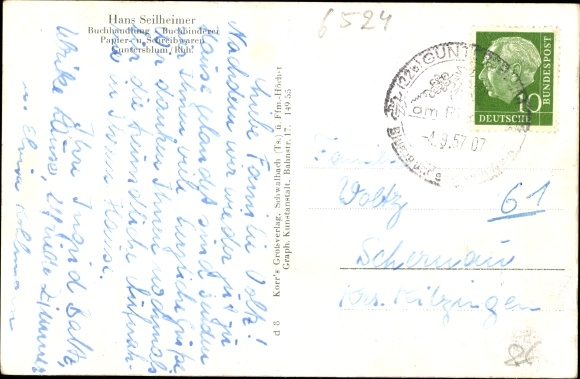 Hans Seilheimer
Buchhandlung · Buchbinderei
Papier- u. Schreibwaren
Guntersblum, Rhh.
6524
Liebe Familie Voltz!
Nachdem wir wieder gut zu
Hause gelandet sind, senden
wir Ihnen viele herzliche Grüße
Wir danken Ihnen nochmals
für die freundliche Aufnah-
me in Ihrem Hause.
Ihre Ingrid Baltz,
Ulrike
Korr's Grotsverlag, Schwalbach (Ts.) ü. Ffm.-Höchst
Graph. Kunstanstalt, Bahnstr. 17. 149.55
d 8
(22b) GUNT
-4.9.57.07
10
DEUTSCHE
BUNDESPOST
Familie
Voltz
61
Schernau
Krs. Kitzingen